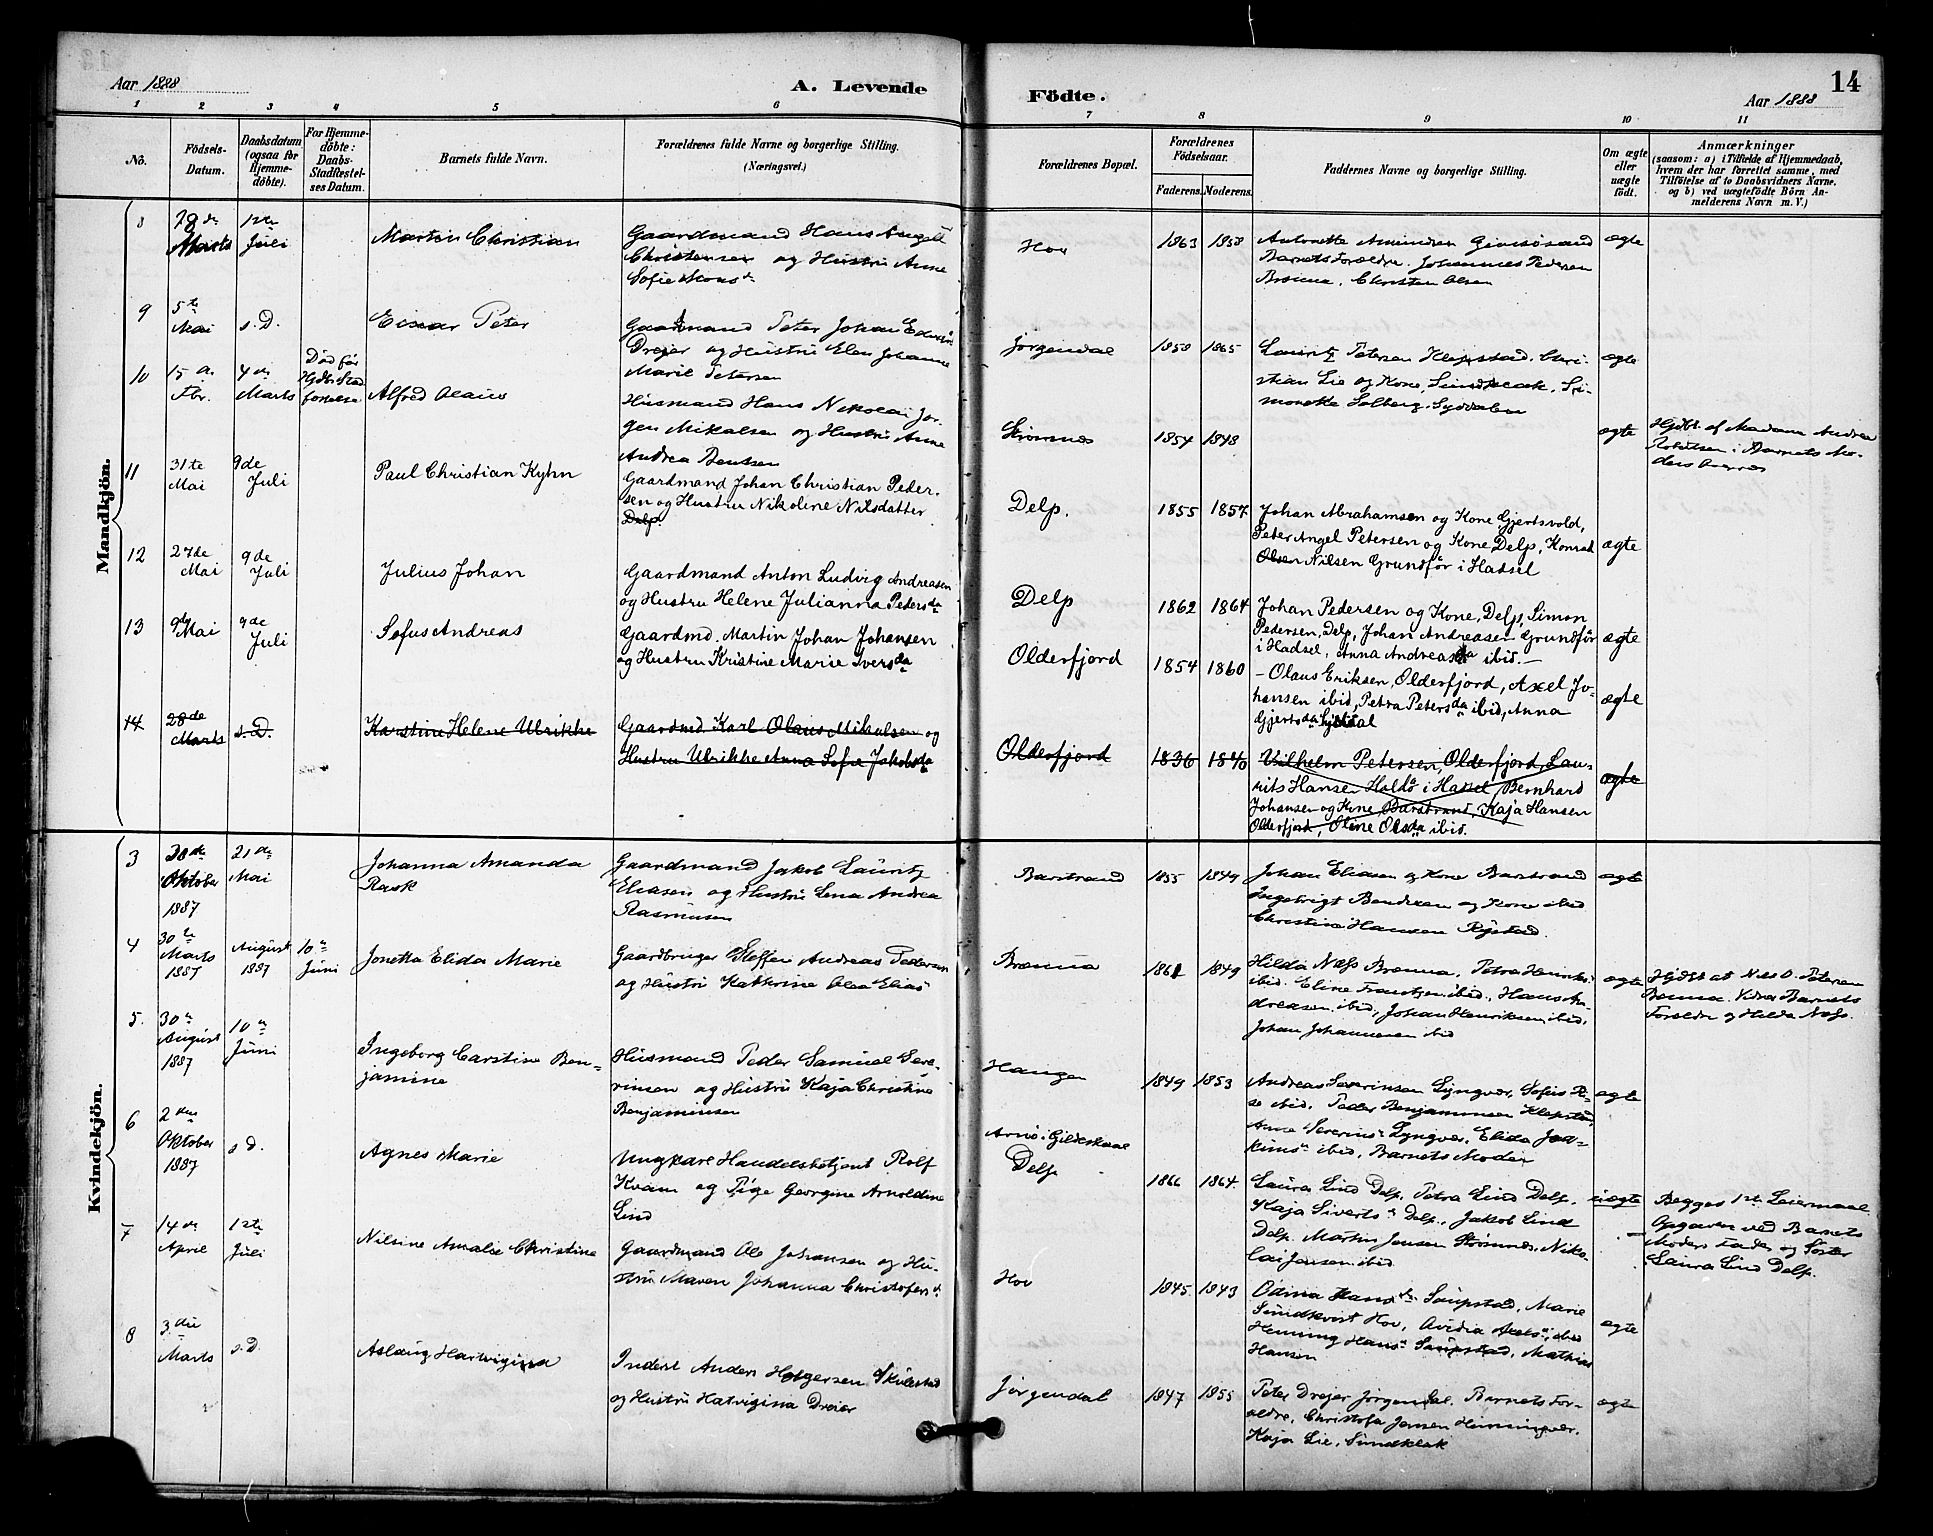 Aar 1888
A. Levende
Födte.
14
Aar 1888
1 2 3 4 5 6 7 8 9 10 11
No.
Födsels-
Datum.
Daabsdatum
(ogsaa for
Hjemme-
döbte).
For Hjemme-
döbte:
Daabs-
Stadfæstel-
ses Datum.
Barnets fulde Navn.
Forældrenes fulde Navne og borgerlige Stilling.
(Næringsvei.)
Forældrenes Bopæl.
Forældrenes
Födselsaar.
Faderens. Moderens.
Faddernes Navne og borgerlige Stilling.
Om ægte
eller
uægte
födt.
Anmærkninger
(saasom: a) i Tilfælde af Hjemmedaab,
hvem der har forrettet samme, med
Tilföielse af to Daabsvidners Navne,
og b) ved uægtefödte Börn An-
melderens Navn m. V.)
Mandkjön.
8
Marts
1ste
Juli
Martin Christian
Gaardmand Hans
Christensen og Hustru Anne
Sofie
Hov
1863 1858
Antonette
Barnets Forældre. Johannes Pedersen
Brenna. Christen Olsen
ægte
9
5te
Mai
s. D.
Einar Peter
Gaardmand Peter Johan
Dreier og Hustru Elen Johanne
Marie Petersen
Jørgendal
1858 1865
Lauritz Petersen Klepstad. Chri-
stian Lie og Kone, Sundklak. Si-
monette Solberg, Syddalen
ægte
10
15de
Fbr.
4de
Marts
Død før
Alfred Olaus
Husmand Hans Nikolai Jør-
gen Mikalsen og Hustru Anne
Andrea Bentsen
Strømnes
1854 1848
ægte
Hjdbt. af Madam Andrea
i Barnets Mo-
ders
11
31te
Mai
9de
Juli
Paul Christian Kyhn
Gaardmand Johan Christian Peder-
sen og Hustru Nikoline Nilsdatter
Delp
Delp.
1855 1857
Johan Abrahamsen og Kone Gjertsvold,
Peter Angel Petersen og Kone Delp, Konrad
Olsen Nilsen Grundfør i Hadsel
ægte
12
27de
Mai
9de
Juli
Julius Johan
Gaardmand Anton Ludvig Andreasen
og Hustru Helene Julianna Pedersda
Delp
1862 1864
Johan Pedersen og Kone, Delp, Simon
Pedersen, Delp, Johan Andreasen Grundfør
i Hadsel, Anna Andreasda ibid.—
ægte
13
9de
Mai
9de
Juli
Sofus Andreas
Gaardmd. Martin Johan Johansen
og Hustru Kristine Marie Iversda
Olderfjord
1854 1860
- Olaus Eriksen, Olderfjord, Axel Jo-
hansen ibid, Petra Petersda ibid, Anna
Gjertsda
ægte
14
28de
Marts
s. D.
Karstine Helene Ulrikke
Gaardmd. Karl Olaus Mikalsen og
Hustru Ulrikke Anna Sofie Jakobsda
Olderfjord
1836 1840
Vilhelm Petersen, Olderfjord, Lau-
rits Hansen Holdø i Hassel, Bernhard
Johansen og Kone, Barstrand, Kaja Hansen
Olderfjord, Oline Olsda ibid.
ægte
Kvindekjön.
3
28de
Oktober
1887
21de
Mai
Johanna Amanda
Rask
Gaardmand Jakob Lauritz
Eliasen og Hustru Lena Andrea
Rasmussen
Barstrand
1855 1849
Johan Eliasen og Kone Barstrand
Ingebrigt Bendixen og Kone ibid
Christine Hansen
ægte
4
30te
Marts
1887
August
1887
10de
Juni
Jonetta Elida Marie
Gaardbruger Steffen Andreas Pedersen
og Hustru Kathrine Olea Elias
Brenna
1861 1849
Hilda Næss Brenna. Petra Henriks
ibid. Eline Frantzen ibid. Hans An-
dreasen ibid, Johan Henriksen ibid.
Johan Johannesen ibid
ægte
Hjdbt af Nils O. Petersen
Brenna. Vidner Barnets
Forældre og Hilda Næss.
5.
30te
August
1887
10de
Juni
Ingeborg Carstine Ben-
jamine
Husmand Peder Samuel Seve-
rinsen og Hustru Kaja Christine
Benjaminsen
Haugen
1849 1853
Andreas Severinsen Lyngvær, Sofus
ibid. Peder Benjaminsen Klepstad,
Anne Severins Lyngvær. Elida
ibid. Barnets Moder
ægte
6
2den
Oktober
1887
s D.
Agnes Marie
Ungkarl Handelsbetjent Rolf
Kvam og Pige Georgine Arnoldine
Lind
Arnø i Gildeskaal
Delp
1866 1864.
Laura Lind Delp. Petra Lind Delp.
Kaja Siverts Delp. Jakob Lind
Delp. Martin Jensen Strømnes, Niko-
lai Jensen ibid.
uægte
Begges 1ste Leiermaal.
Opgaven ved Barnets
Moders Fader og Søster
Laura Lind Delp.
7
14de
April
1ste
Juli
Nilsine Amalie Christine
Gaardmand Ole Johansen og Hu-
stru Maren Johanna Christofers
Hov
1845 1843
Odina Hans Saupstad, Marie
Sundkvist Hov, ibid
Henning Hans Saupstad, Mathias
Hansen
ægte
8
3die
Marts
s. D.
Aslaug Hartvigina
Inderst Anders Holgersen
og Hustru Hatvigina Dreier
Jørgendal
1847 1855
Peter Drejer Jørgendal. Barnets For-
ældre, Christofa Jensen Henningvær.
Kaja Lie, Sundklak
ægte